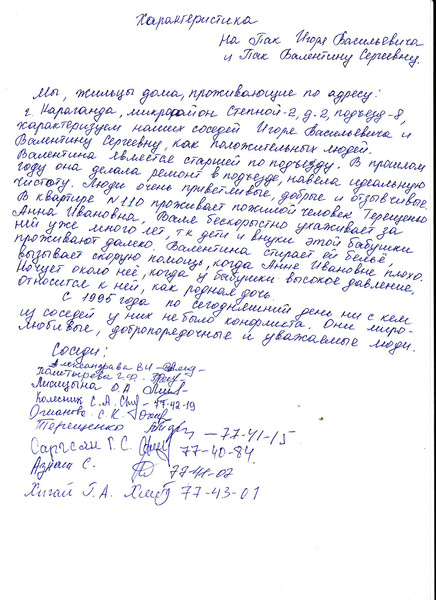 Характеристика
на Пак Игоря Васильевича
и Пак Валентину Сергеевну.
Мы, жильцы дома, проживающие по адресу:
г. Караганда, микрорайон Степной-2, д.2, подъезд-8,
характеризуем наших соседей Игоря Васильевича и
Валентину Сергеевну, как положительных людей.
Валентина является старшей по подъезду. В прошлом
году она делала ремонт в подъезде, навела идеальную
чистоту. Люди очень приветливые, добрые и отзывчивые.
В квартире №110 проживает пожилой человек Терещенко
Анна Ивановна, Валя бескорыстно ухаживает за
ней уже много лет, т.к дети и внуки этой бабушки
проживают далеко. Валентина стирает ей бельё,
вызывает скорую помощь, когда Анне Ивановне плохо.
Ночует около неё, когда у бабушки высокое давление,
относится к ней, как родная дочь.
С 1995 года по сегодняшний день ни с кем
из соседей у них не было конфликта. Они миро-
любивые, добропорядочные и уважаемые люди.
Соседи:
В.И
Лисицына О.А
С.А. 77-42-19
С.К.
Терещенко 77-41-15
Саргсян Г.С. 77-40-84
С. 77-41-02
Хигай Г.А. 77-43-01